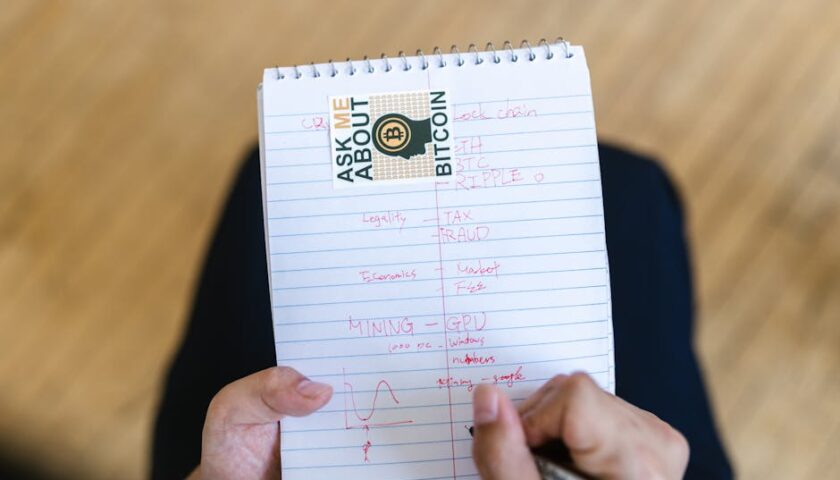 ASK ME
ABOUT
BITCOIN
lock chain
TH
BTC
RIPPLE
Legality — TAX
- FRAUD
Economics - Market
- Fee
MINING — GPU
1000 pc - Windows
numbers
- google